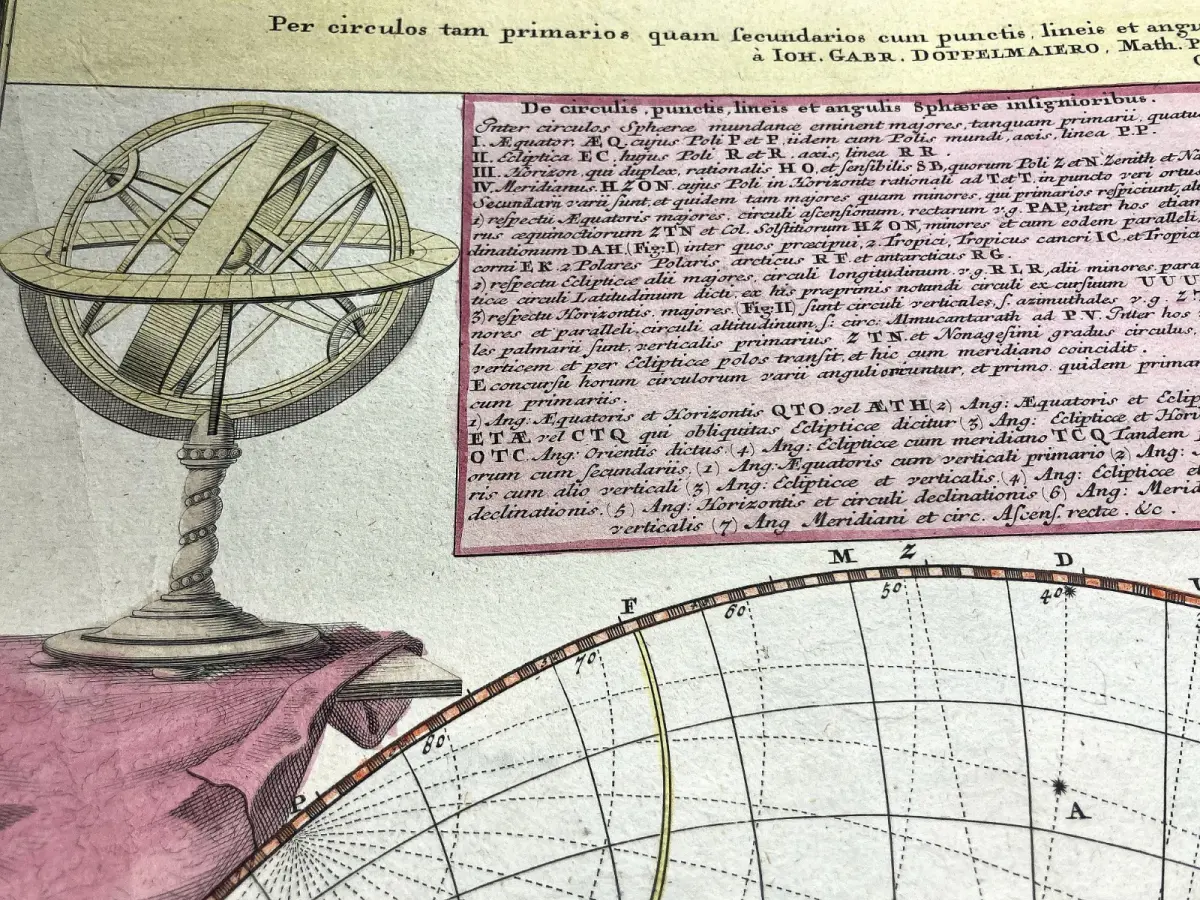 Per circulos tam primarios quam ſecundarios cum punctis, lineis et angu
à IOH. GABR. DOPPELMAIERO, Math. P
De circulis, punctis, lineis et angulis Sphæræ inſignioribus.
Inter circulos Sphæræ mundanæ eminent majores, tanquam primarii, quatu
I. Æquator, ÆQ, cujus Poli P et P, iidem cum Polis mundi, axis, linea P.P.
II. Ecliptica EC, hujus Poli R et R, axis, linea RR.
III. Horizon, qui duplex, rationalis HO, et ſenſibilis SB, quorum Poli Z et N Zenith et Na
IV. Meridianus, HZON, cujus Poli in Horizonte rationali ad T et T, in puncto veri ortus
Secundarii varii ſunt, et quidem tam majores quam minores, qui primarios reſpiciunt, al
1) reſpectu Æquatoris majores, circuli aſcenſionum, rectarum v.g. PAP, inter hos etiam
rus æquinoctiorum ZTN et Col. Solſtitiorum HZON, minores et cum eodem paralleli
dinationum DAH (Fig: I) inter quos præcipui, 2 Tropici, Tropicus cancri IC, et Tropicu
corni EK. 2 Polares Polaris, arcticus RF et antarcticus RG.
2) reſpectu Eclipticæ alii majores, circuli longitudinum v.g. RLR, alii minores para
ticæ circuli Latitudinum dicti, ex his præprimis notandi circuli ex curſuum UUU
3) reſpectu Horizontis, majores, (Fig: II) ſunt circuli verticales, ſ. azimuthales v.g Z
nores et paralleli, circuli altitudinum ſ: circ: Almucantarath ad P.V. Inter hos
les palmarii ſunt, verticalis primarius ZTN, et Nonageſimi gradus circulus,
verticem et per Eclipticæ polos tranſit, et hic cum meridiano coincidit.
E concurſu horum circulorum varii anguli oreuntur, et primo quidem primar
cum primariis.
1) Ang: Æquatoris et Horizontis QTO vel ÆTH (2) Ang: Æquatoris et Eclip
ETÆ vel CTQ qui obliquitas Eclipticæ dicitur (3) Ang: Eclipticæ et Hori
OTC. Ang: Orientis dictus (4) Ang: Eclipticæ cum meridiano TCQ Tandem
orum cum ſecundariis, (1) Ang: Æquatoris cum verticali primario (2) Ang:
ris cum alio verticali (3) Ang: Eclipticæ et verticalis, (4) Ang: Eclipticæ et
declinationis. (5) Ang: Horizontis et circuli declinationis (6) Ang: Merid
verticalis (7) Ang Meridiani et circ. Aſcenſ. rectæ. &c.
M Z D
50 40
F 60
70
80
P
A